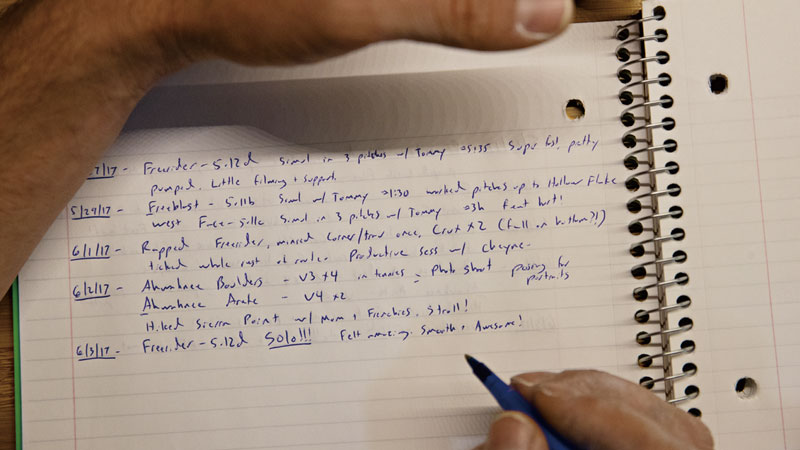 7/17 - Freerider - 5.12d Simul in 3 pitches w/ Tommy 5:35 Super fast, pretty
pumped. Little filming + support.
5/29/17 - Freeblast - 5.11b Simul w/ Tommy 1:30 worked pitches up to Hollow Flake
West Face - 5.11c Simul in 3 pitches w/ Tommy 3h feet hurt!
6/1/17 - Rapped Freerider, mini corner/trav once, Crux x2 (fall on bottom?!)
ticked whole rest of route. Productive sess w/ Cheyne.
6/2/17 - Ahwahnee Boulders - V3 x4 in tennies - Photo shoot posing for
portraits
Ahwahnee Arete - V4 x2
Hiked Sierra Point w/ Mom + Frenchies, Stroll!
6/3/17 - Freerider - 5.12d Solo!!! Felt amazing. Smooth + Awesome!